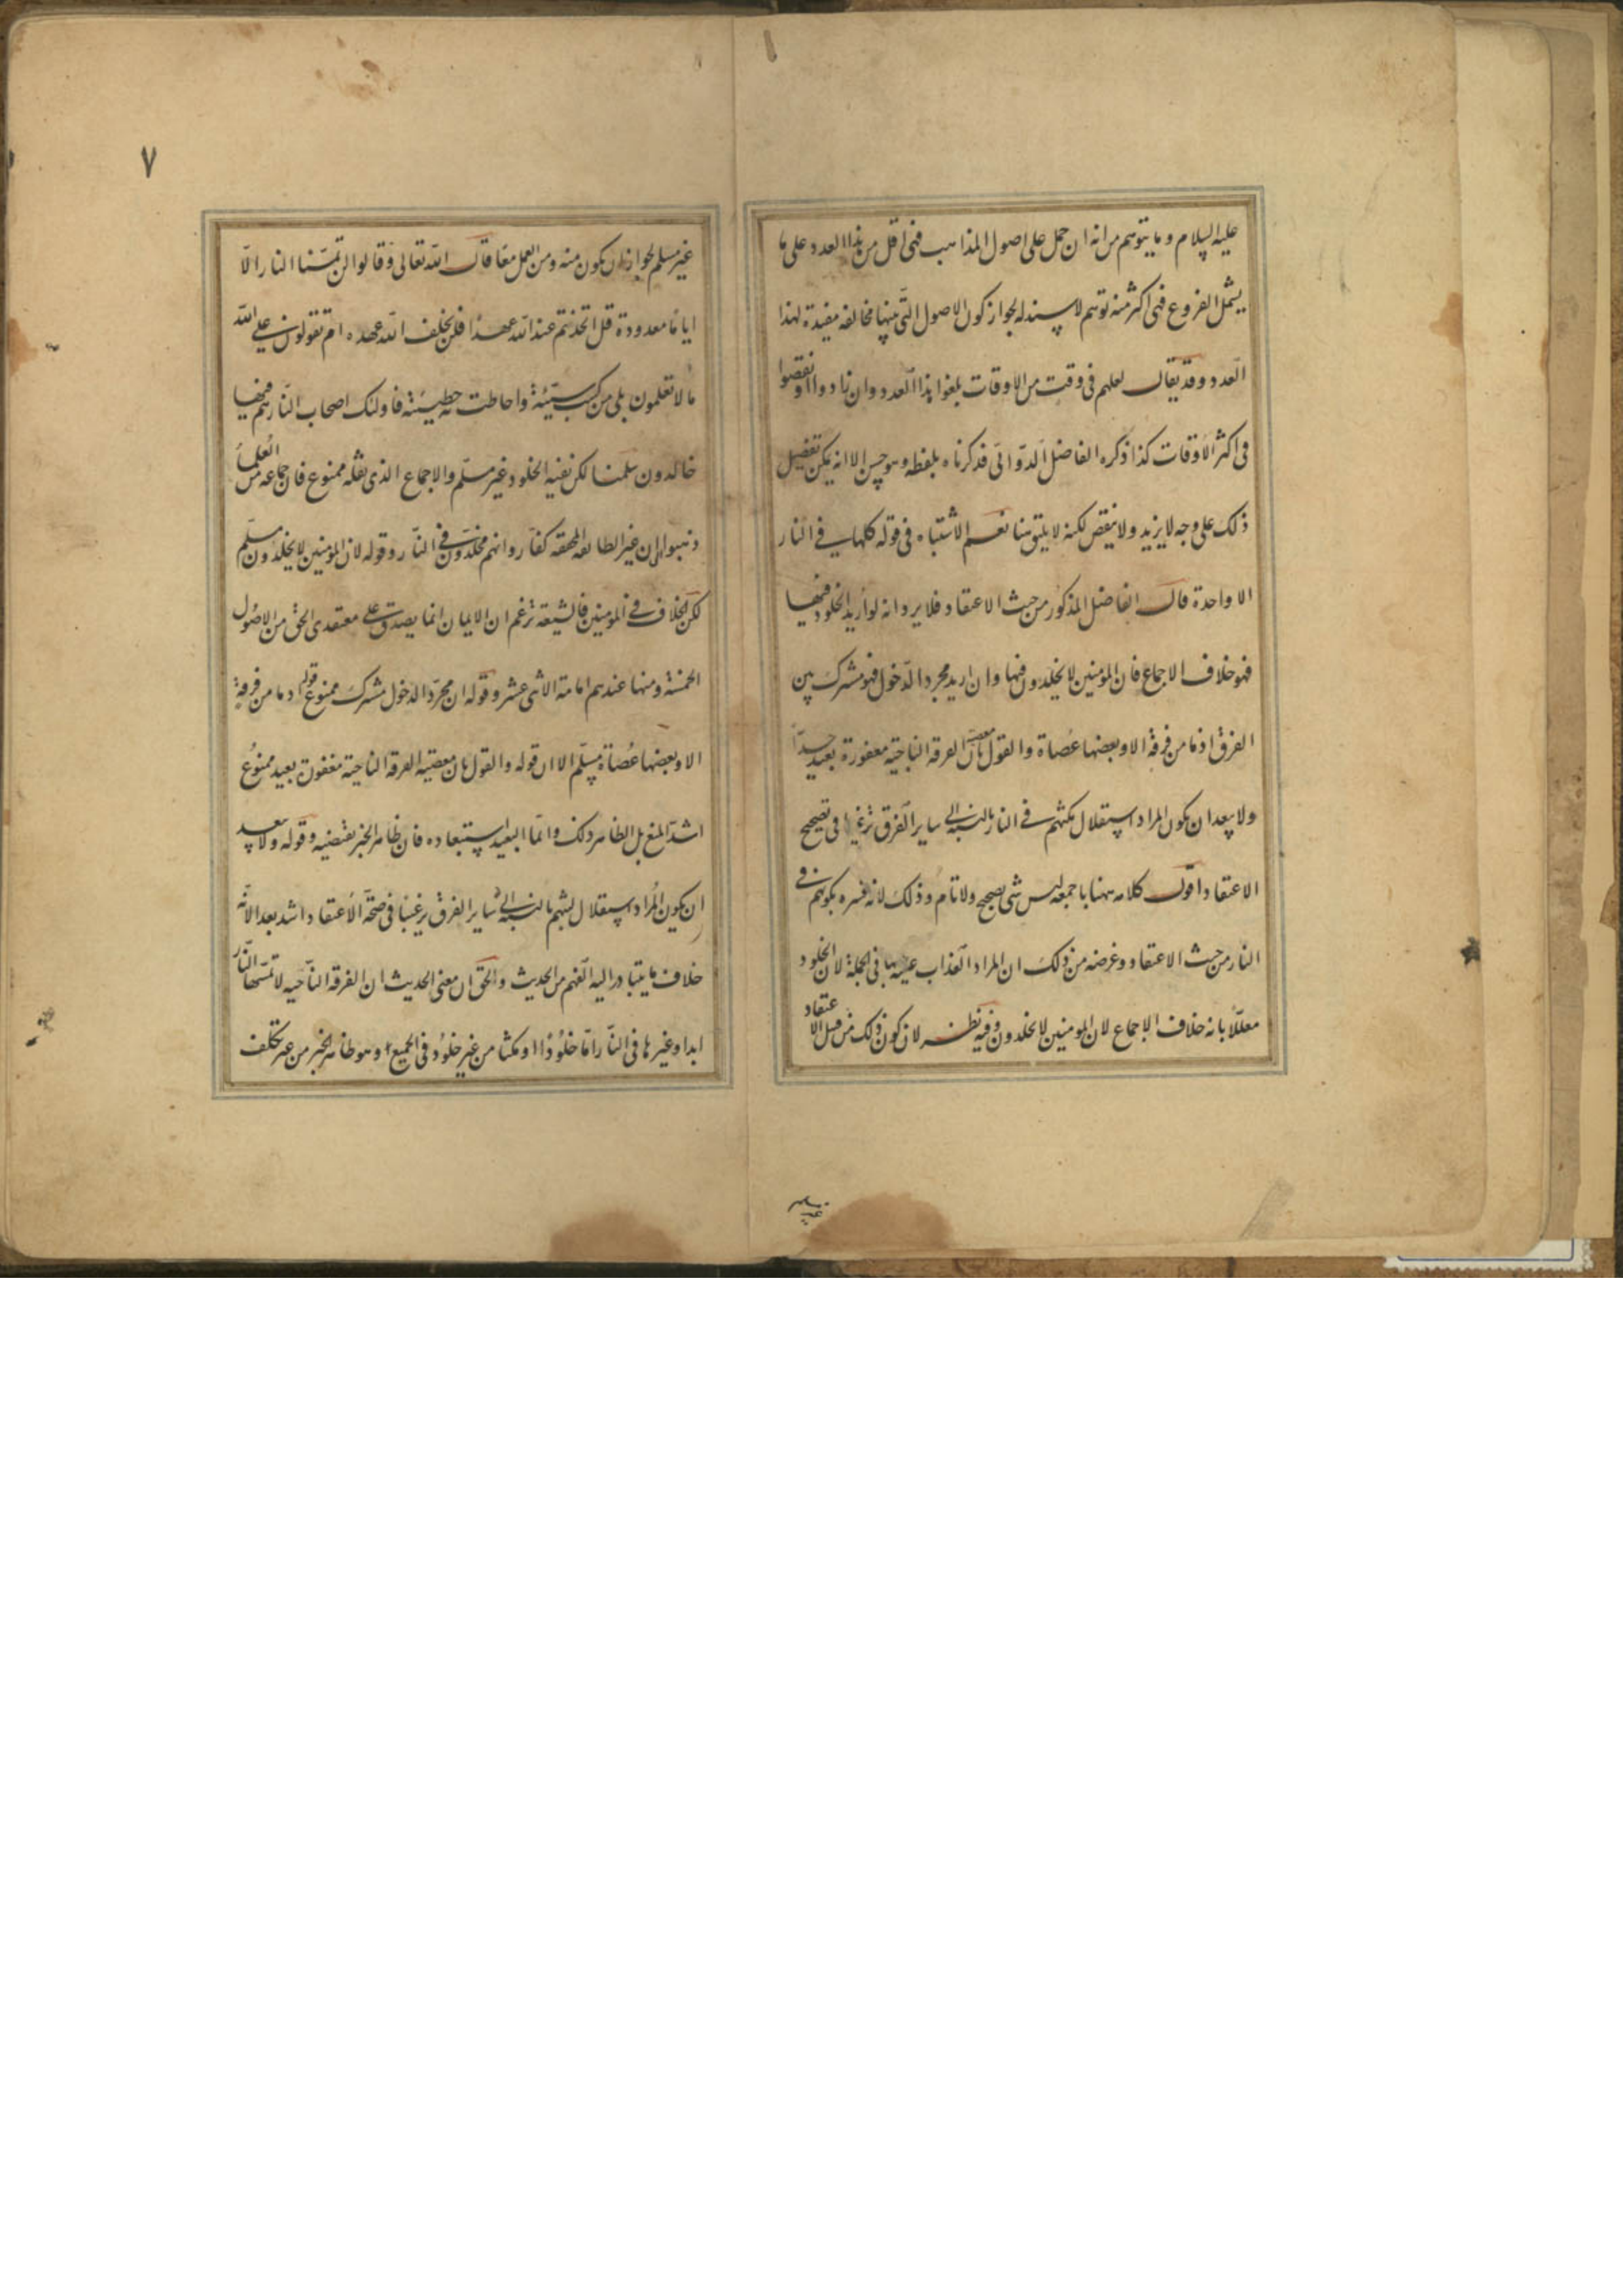 عليه السلام وما يتوهم من انه ان حمل على اصول المذاهب فهى اقل من هذا العدد وعلى ما
يشمل الفروع فهى اكثر منه توهم لا سند له لجواز كون الاصول التى بينها مخالفة مقيدة بهذا
العدد وقد يقال لعلهم فى وقت من الاوقات بلغوا هذا العدد وان زادوا او نقصوا
فى اكثر الاوقات كذا ذكره الفاضل الدوانى قد ذكرناه بلفظه وهو حسن الا انه يمكن تفصيل
ذلك على وجه لا يزيد ولا ينقص لكنه لا يليق هنا نعم الاشتباه فى قوله كلها فى النار
الا واحدة قال الفاضل المذكور من حيث الاعتقاد فلا يرد انه لو اريد الخلود فيها
فهو خلاف الاجماع فان المؤمنين لا يخلدون فيها وان اريد مجرد الدخول فهو مشترك بين
الفرق اذ ما من فرقة الا وبعضها عصاة والقول بان معصية الفرقة الناجية مغفورة بعيد جدا
ولا يبعد ان يكون المراد استقلال مكثهم فى النار بالنسبة الى ساير الفرق ترغيبا فى تصحيح
الاعتقاد اقول كلامه ههنا باجمعه ليس شى بصحيح ولا تام وذلك لانه فسره بكونهم فى
النار من حيث الاعتقاد وغرضه من ذلك ان المراد العذاب عليها فى الجملة لا الخلود
معللا بانه خلاف الاجماع لان المومنين لا يخلدون وفيه نظر لان كون ذلك من قبل الاعتقاد
٧
غير مسلم لجواز ان يكون منه ومن العمل معا قال الله تعالى وقالوا لن تمسنا النار الا
اياما معدودة قل اتخذتم عند الله عهدا فلن يخلف الله عهده ام تقولون على الله
ما لا تعلمون بلى من كسب سيئة واحاطت به خطيئته فاولئك اصحاب النار هم فيها
خالدون سلمنا لكن نفيه الخلود غير مسلم والاجماع الذى نقله ممنوع فان جماعة من العلما
ذهبوا الى ان غير الطائفة المحقة كفار وانهم مخلدون فى النار وقوله لان المؤمنين لا يخلدون مسلم
لكن الخلاف فى المؤمنين فالشيعة تزعم ان الايمان انما يصدق على معتقدى الحق من الاصول
الخمسة ومنها عندهم امامة الاثنى عشر وقوله ان مجرد الدخول مشترك ممنوع قوله اذ ما من فرقة
الا وبعضها عصاة مسلم الا ان قوله والقول بان معصية الفرقة الناجية مغفورة بعيد ممنوع
اشد المنع بل الظاهر ذلك وانما البعيد استبعاده فان ظاهر الخبر يقتضيه وقوله ولا يبعد
ان يكون المراد استقلال لبثهم بالنسبة الى ساير الفرق ترغيبا فى صحة الاعتقاد اشد بعدا لانه
خلاف ما يتبادر اليه الفهم من الحديث والحق ان معنى الحديث ان الفرقة الناجيه لا تمسها النار
ابدا وغيرها فى النار اما خلودا او مكثا من غير خلود فى الجميع وهو ظاهر الخبر من غير تكلف